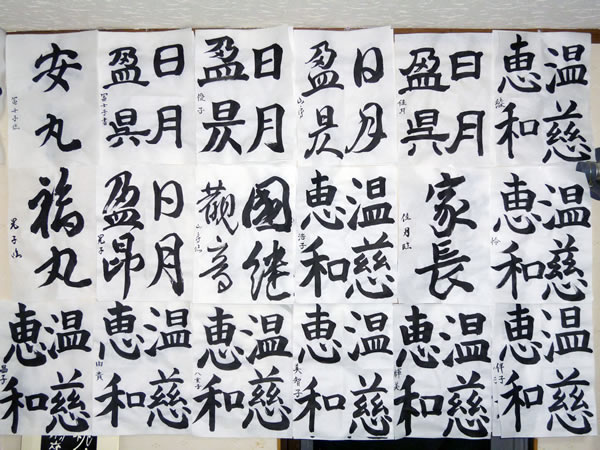 温慈
恵和
日月
盈昃
佳月
日月
盈昃
日月
盈昃
日月
盈昃
冨士子書
安丸
温慈
恵和
家長
佳月臨
温慈
恵和
浩子
國継
觀音
日月
盈昴
晃子
福丸
晃子臨
温慈
恵和
温慈
恵和
輝美
温慈
恵和
美智子
温慈
恵和
温慈
恵和
由貴
温慈
恵和
昌子